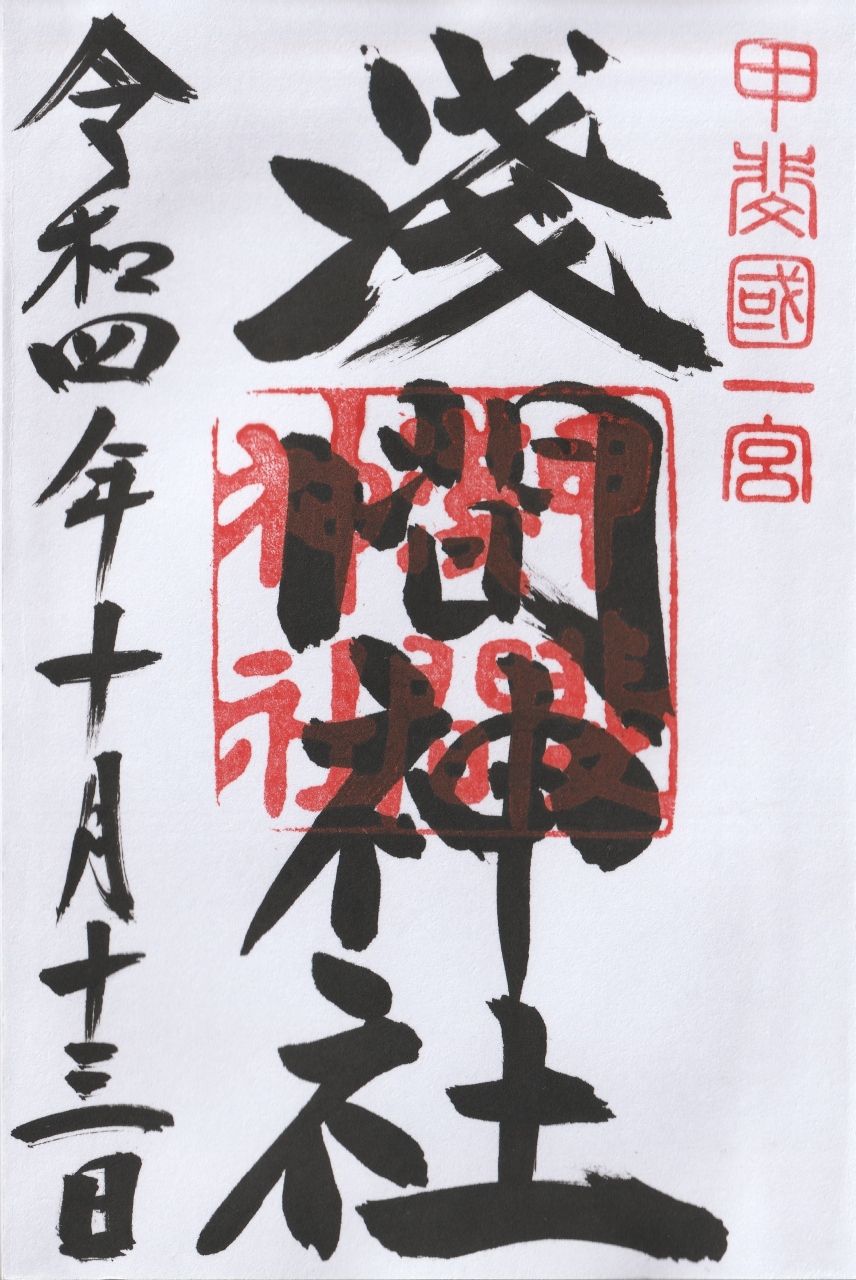 甲斐國一宮
淺間神社
甲斐
淺間
神社
令和四年十月十三日